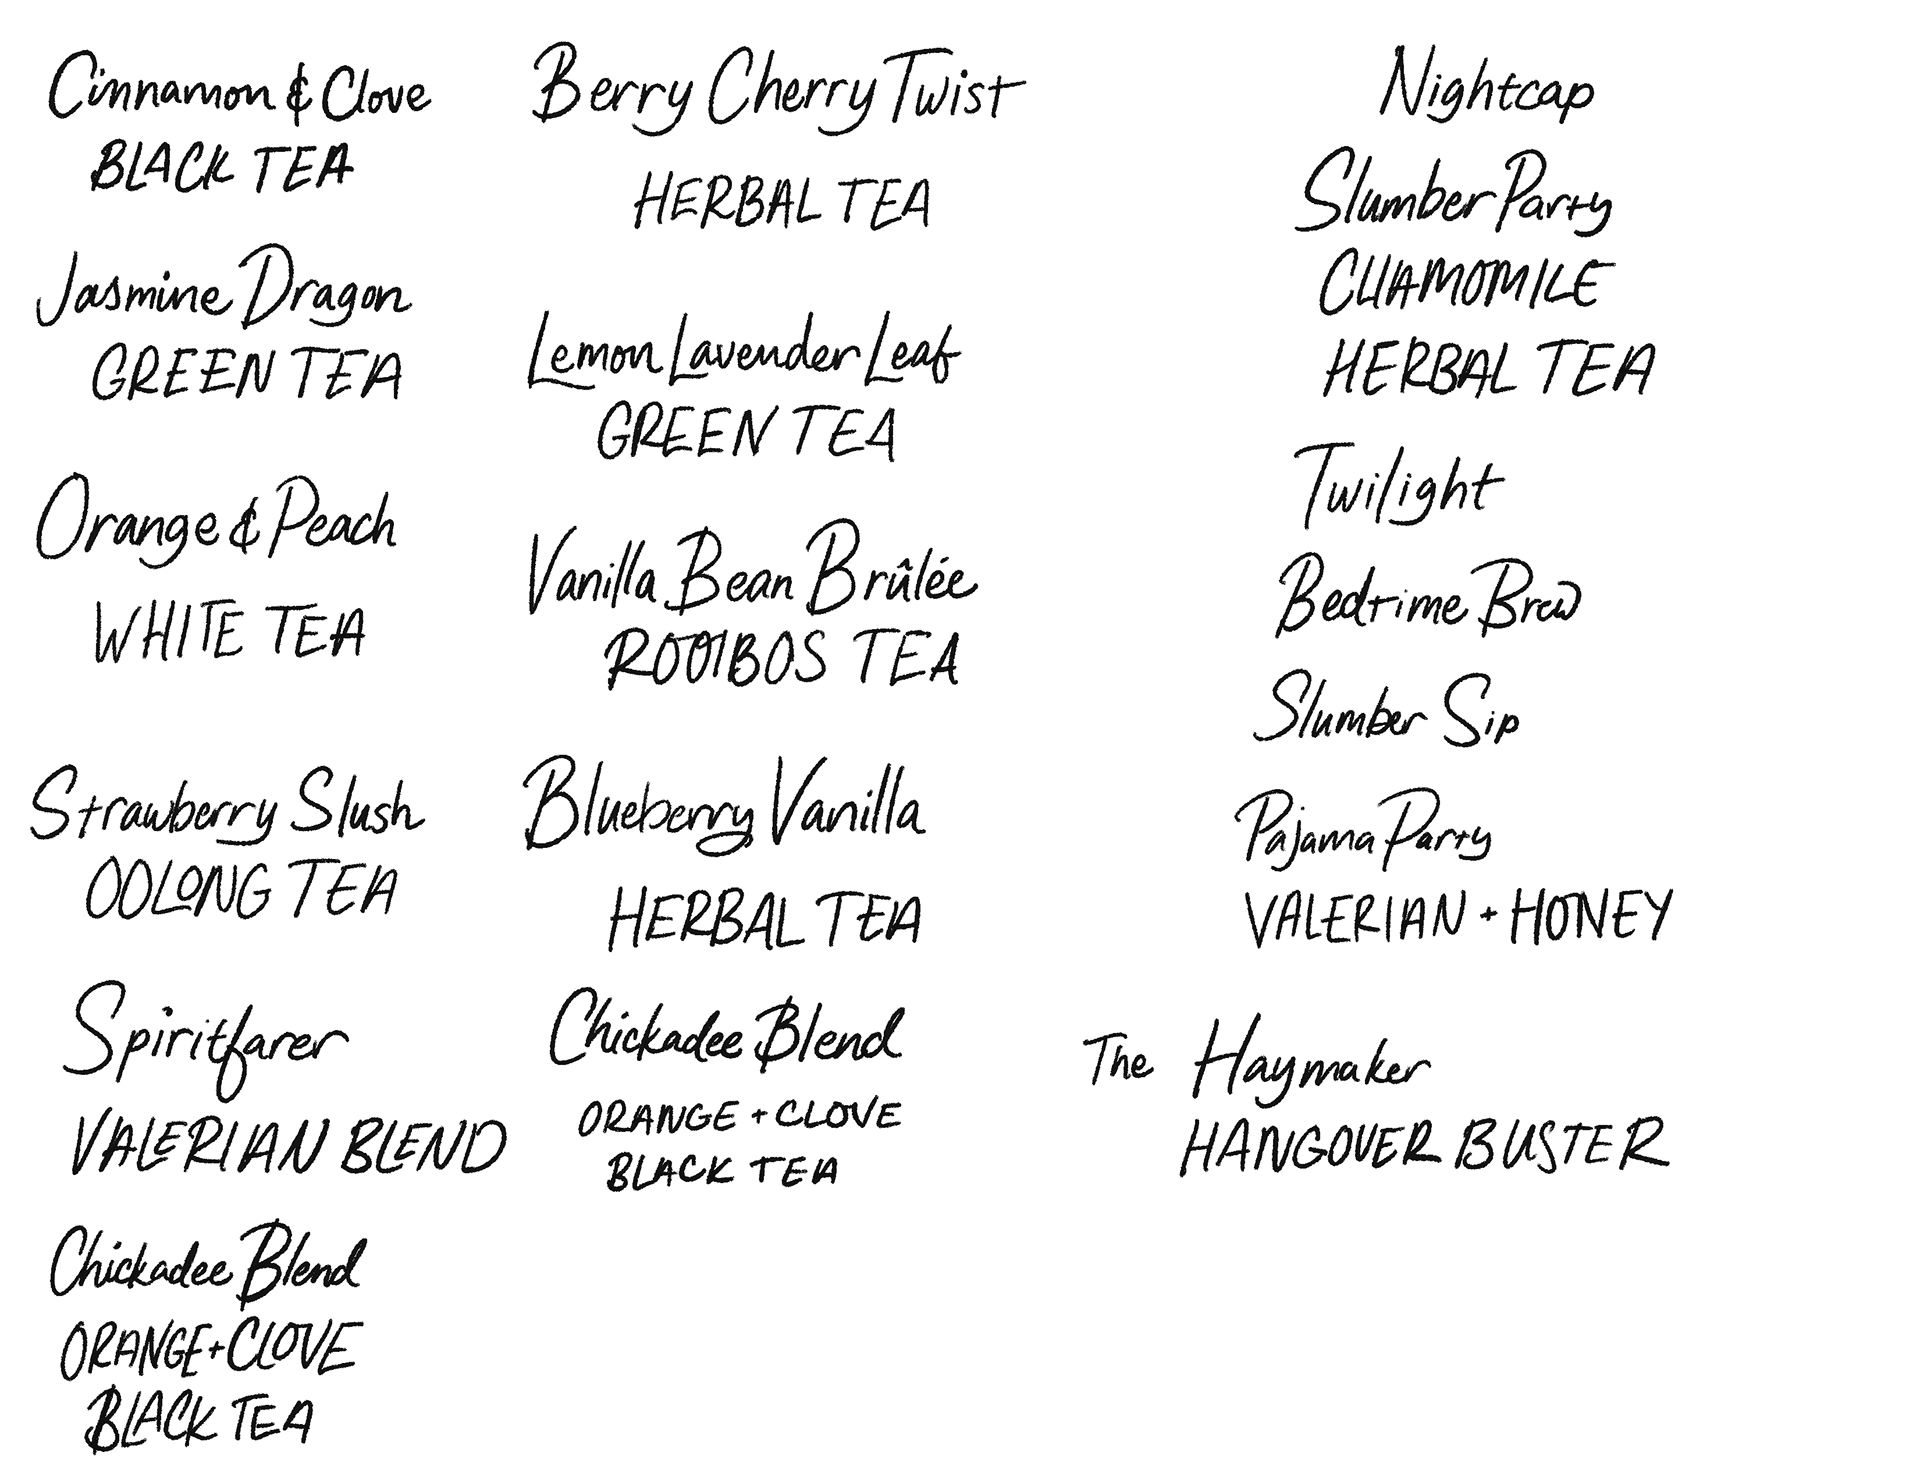 Cinnamon & Clove
BLACK TEA
Jasmine Dragon
GREEN TEA
Orange & Peach
WHITE TEA
Strawberry Slush
OOLONG TEA
Spiritfarer
VALERIAN BLEND
Chickadee Blend
ORANGE + CLOVE
BLACK TEA
Berry Cherry Twist
HERBAL TEA
Lemon Lavender Leaf
GREEN TEA
Vanilla Bean Brûlée
ROOIBOS TEA
Blueberry Vanilla
HERBAL TEA
Chickadee Blend
ORANGE + CLOVE
BLACK TEA
Nightcap
Slumber Party
CHAMOMILE
HERBAL TEA
Twilight
Bedtime Brew
Slumber Sip
Pajama Party
VALERIAN + HONEY
The Haymaker
HANGOVER BUSTER